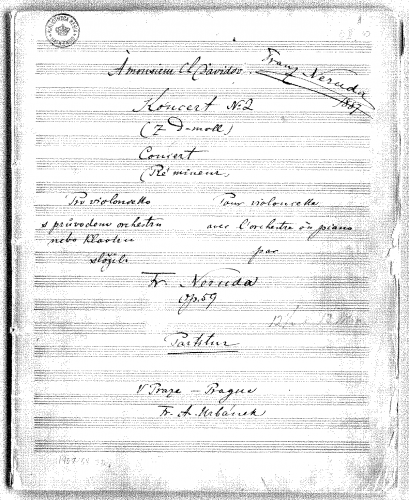 À monsieur Ch Davidov.
Franz Neruda
1887
Koncert No 2
(z D-moll)
Concert
(Ré mineur)
Pro violoncello
s průvodem orchestru
nebo klavíru
složil
Pour violoncelle
avec l'orchestre ou piano
par
Fr. Neruda
Op. 59
Partitur
V Praze — Prague
Fr. A. Urbánek